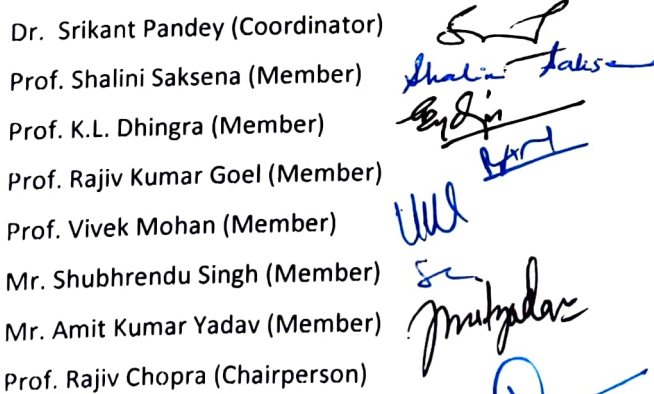 Dr. Srikant Pandey (Coordinator)
Prof. Shalini Saksena (Member) Shalini Sakse
Prof. K.L. Dhingra (Member)
Prof. Rajiv Kumar Goel (Member)
Prof. Vivek Mohan (Member)
Mr. Shubhrendu Singh (Member)
Mr. Amit Kumar Yadav (Member)
Prof. Rajiv Chopra (Chairperson)